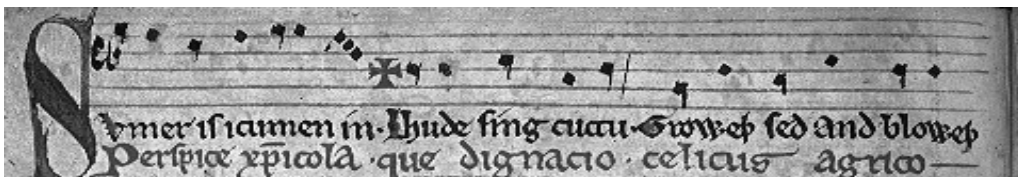 Svmer is icumen in · Lhude sing cuccu · Groweþ sed and bloweþ
Perspice xp̅icola · que dignacio · celicus agrico